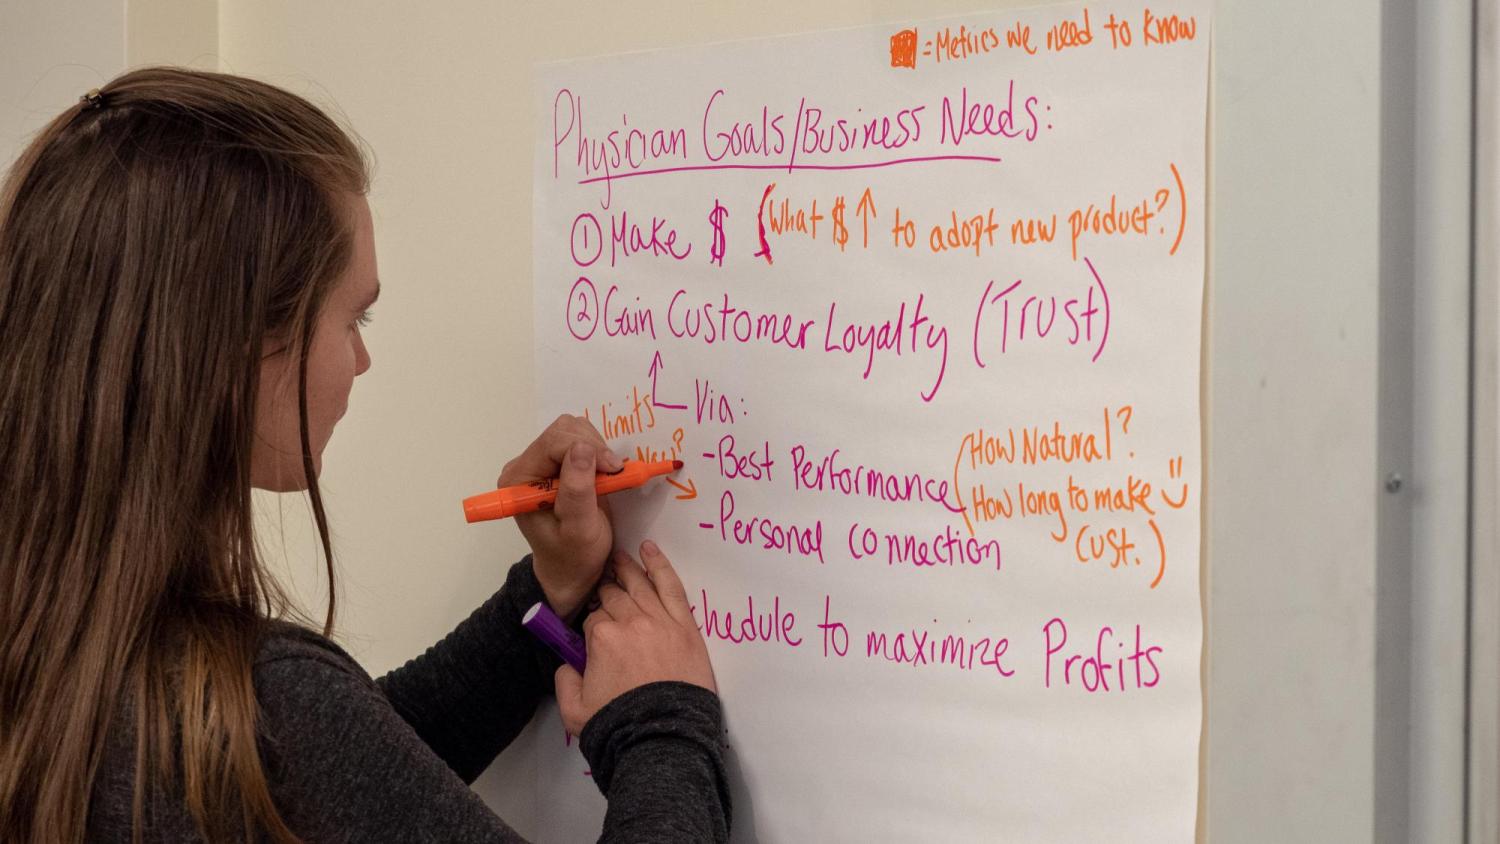 = Metrics we need to know
Physician Goals/Business Needs:
① Make $ (What $↑ to adopt new product?)
② Gain Customer Loyalty (Trust)
limits
Via:
- Best Performance
(How Natural?
How long to make
Cust.)
- Personal connection
to maximize Profits